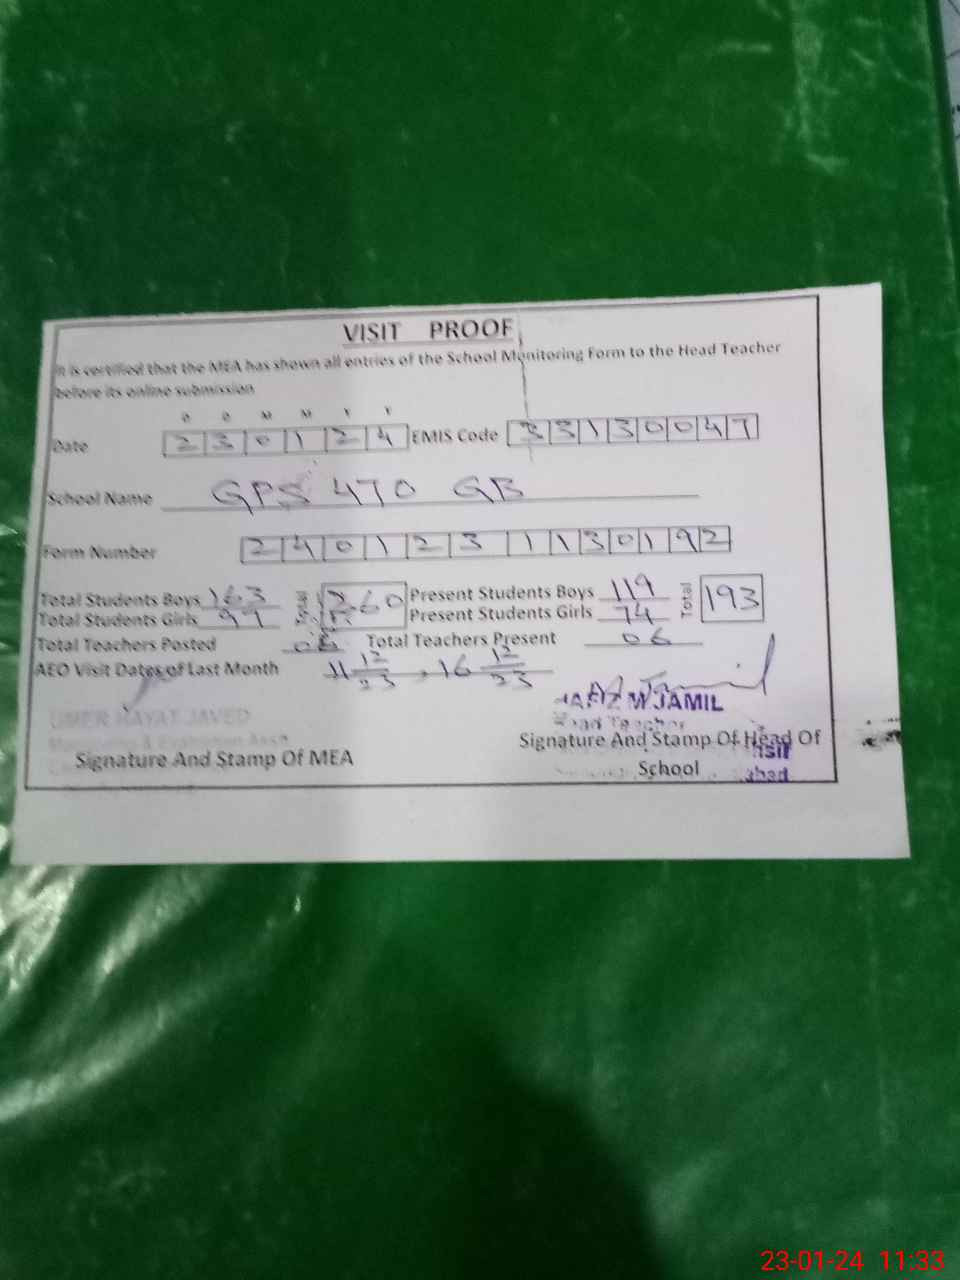 VISIT PROOF
It is certified that the MEA has shown all entries of the School Monitoring Form to the Head Teacher
before its online submission
D D M M Y Y
Date 230124 EMIS Code 33130047
School Name GPS 470 GB
Form Number 2401231130192
Total Students Boys 163 Total 260 Present Students Boys 119 Total 193
Total Students Girls 97 Present Students Girls 74
Total Teachers Posted 06 Total Teachers Present 06
AEO Visit Dates of Last Month 11 12/23, 16 12/23
UMER HAYAT JAVED
HAFIZ M JAMIL
Head Teacher
Signature And Stamp Of MEA
Signature And Stamp Of Head Of
School
23-01-24 11:33